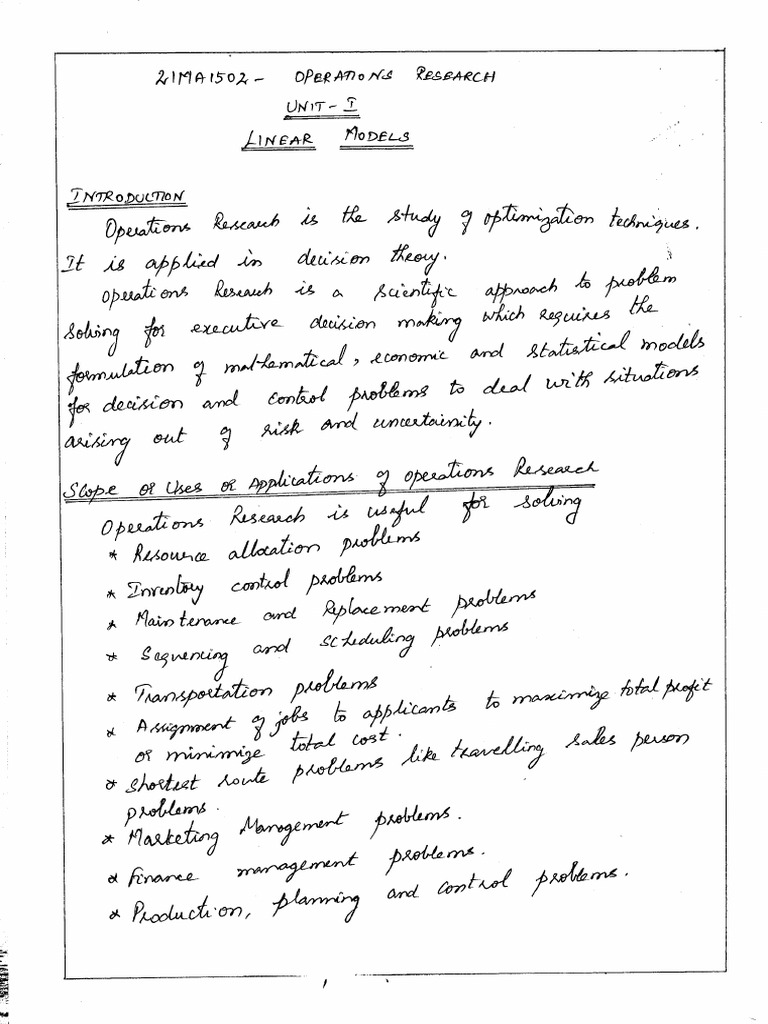 21MA1502 - OPERATIONS RESEARCH
UNIT - I
LINEAR MODELS
INTRODUCTION
Operations Research is the study of optimization techniques.
It is applied in decision theory.
Operations Research is a scientific approach to problem
solving for executive decision making which requires the
formulation of mathematical, economic and statistical models
for decision and control problems to deal with situations
arising out of risk and uncertainity.
Scope or Uses or Applications of Operations Research
Operations Research is useful for solving
* Resource allocation problems
* Inventory control problems
* Maintenance and Replacement problems
* Sequencing and Scheduling problems
* Transportation problems
* Assignment of jobs to applicants to maximize total profit
or minimize total cost.
* Shortest route problems like travelling sales person
problems.
* Marketing Management problems.
* Finance management problems.
* Production, planning and control problems.
1